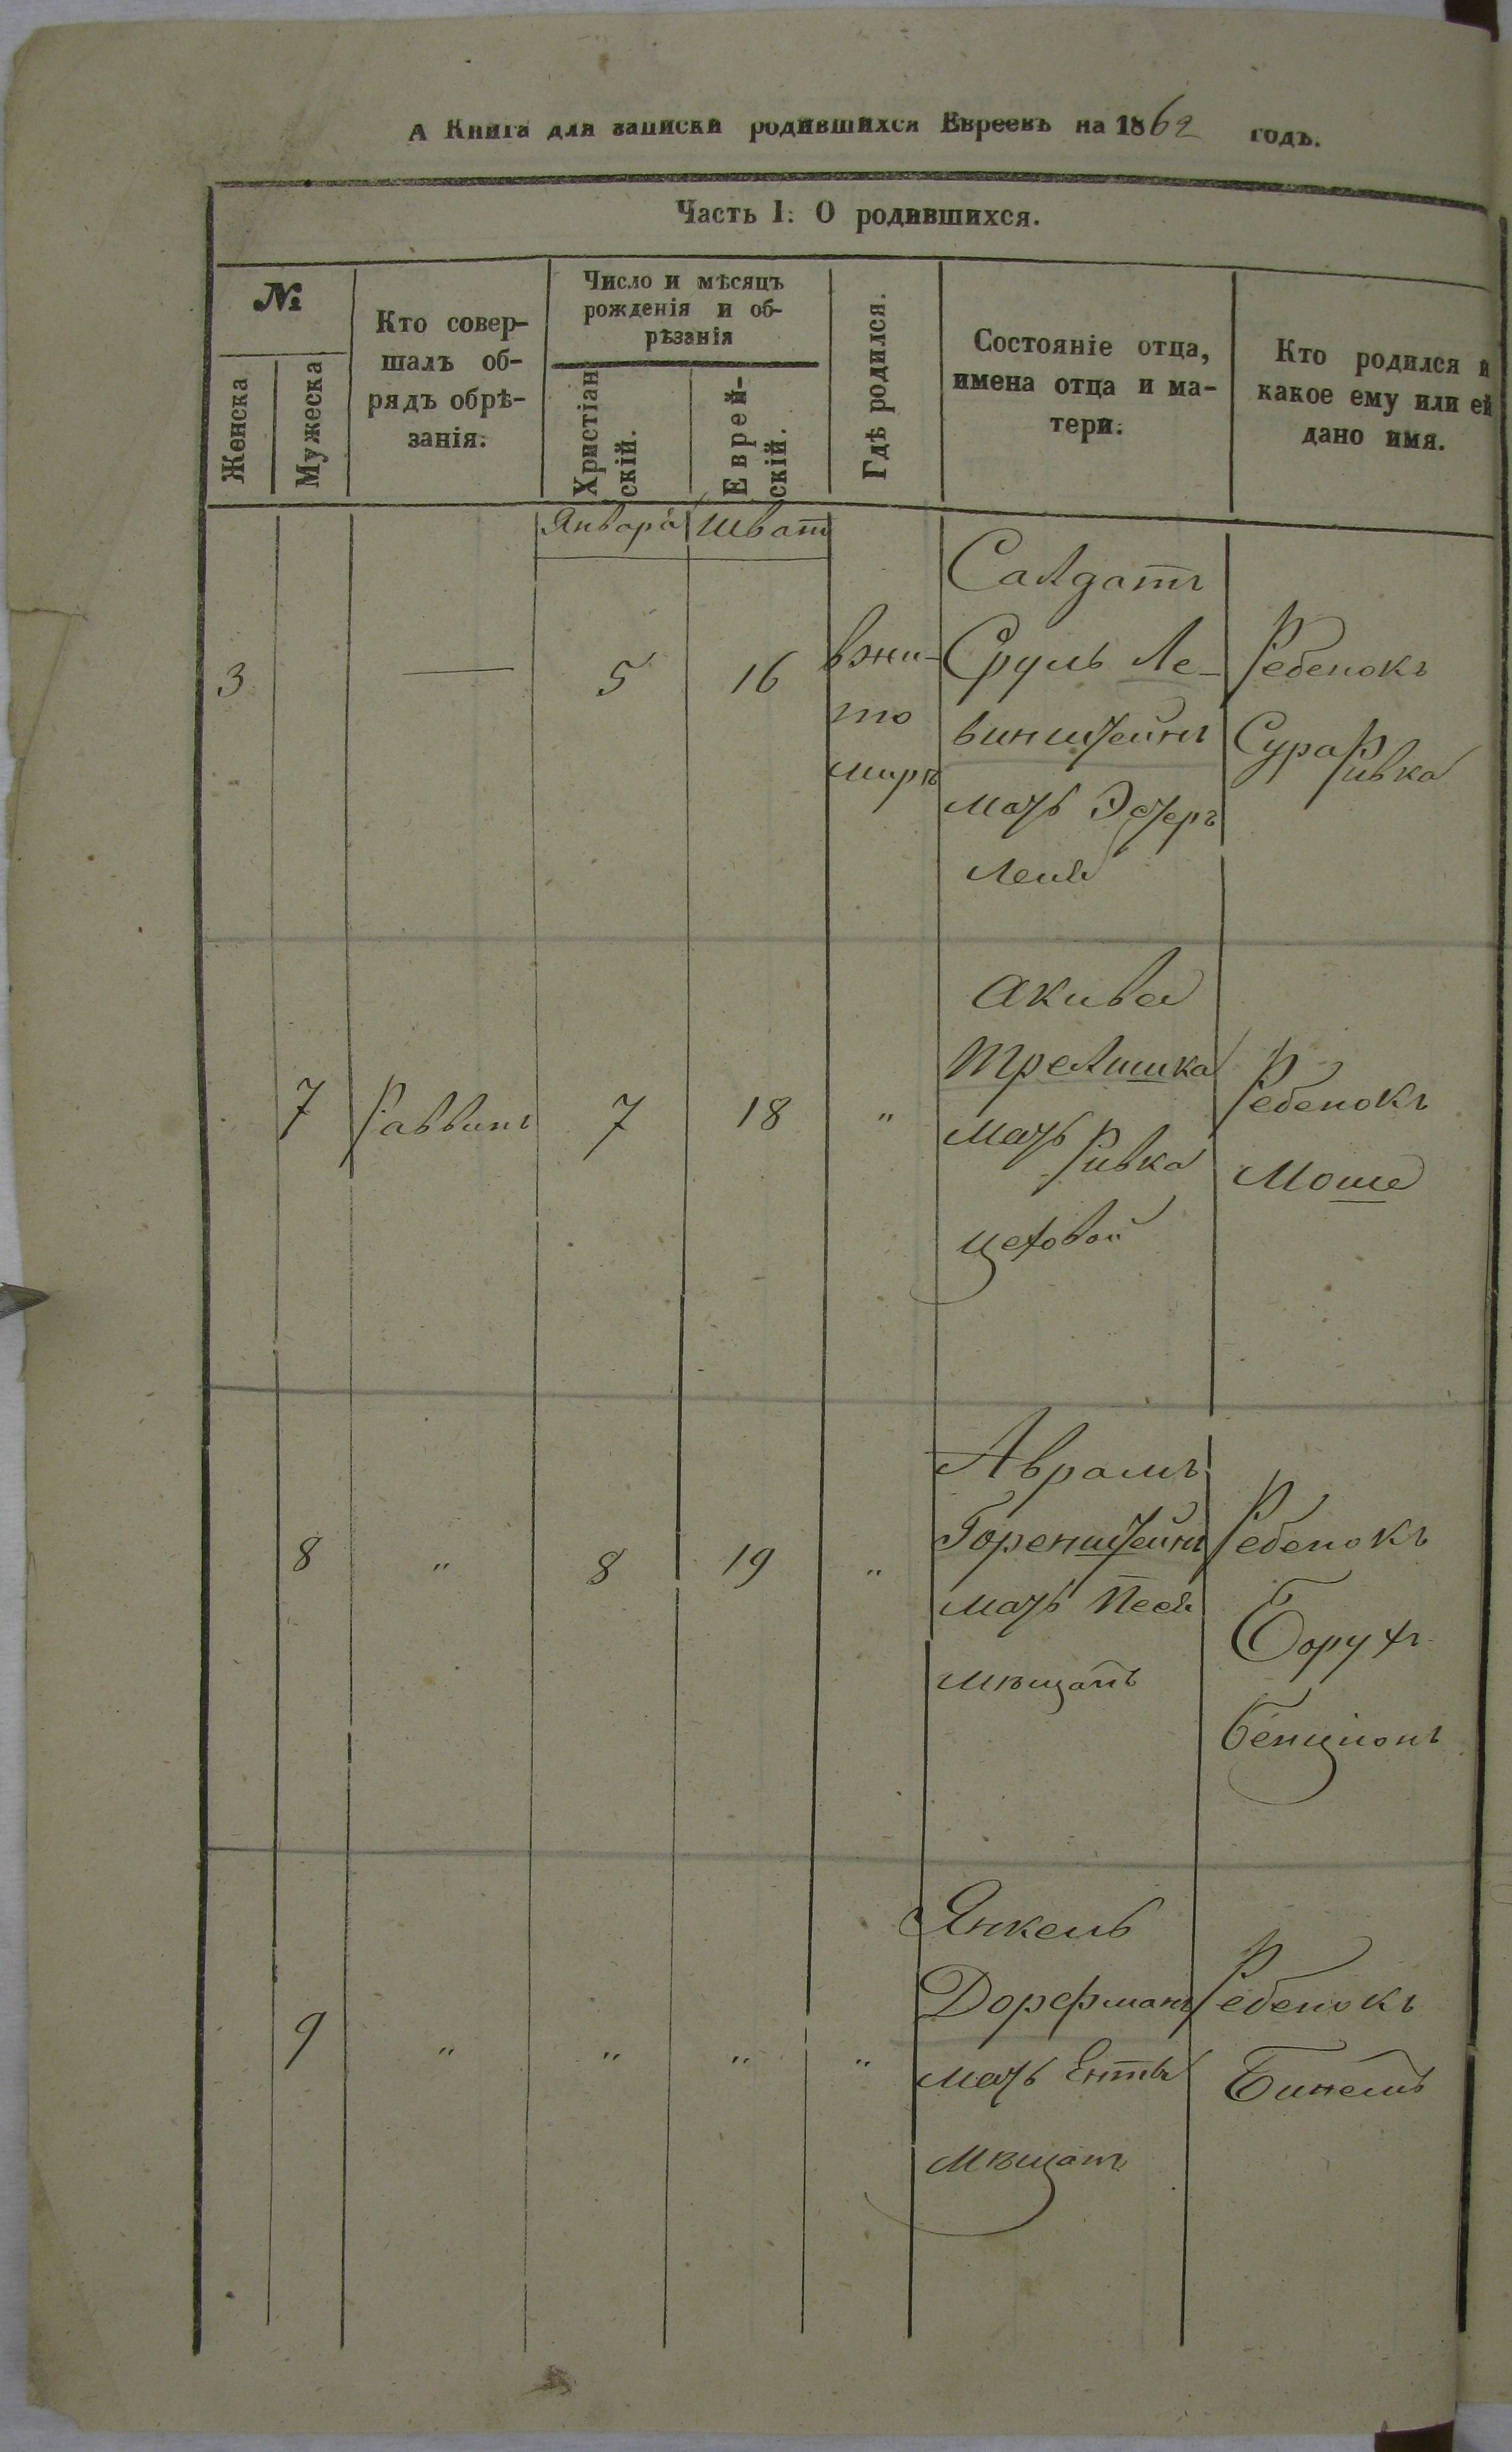 А Книга для записки родившихся Евреевъ на 1862 годъ.
Часть I: О родившихся.
№
Женска
Мужеска
Кто совер-
шалъ об-
рядъ обрѣ-
занія:
Число и мѣсяцъ
рожденія и об-
рѣзанія
Христіан
скій.
Еврей-
скій.
Гдѣ родился.
Состояніе отца,
имена отца и ма-
тери:
Кто родился и
какое ему или ей
дано имя.
Января Шват
3
—
5
16
в жи-
то
мирѣ
Салдатъ
Сруль Ле-
винштейнъ
мать Эстеръ
Лея
Ребенокъ
Сура Ривка
7
Раввинъ
7
18
"
Акива
Трелишка
мать Ривка
цеховой
Ребенокъ
Моше
8
"
8
19
"
Аврамъ
Горенштейнъ
мать Песя
мѣщанъ
Ребенокъ
Борухъ
Бенционъ
9
"
"
"
"
Янкель
Дорфманъ
мать Ента
мѣщанъ
Ребенокъ